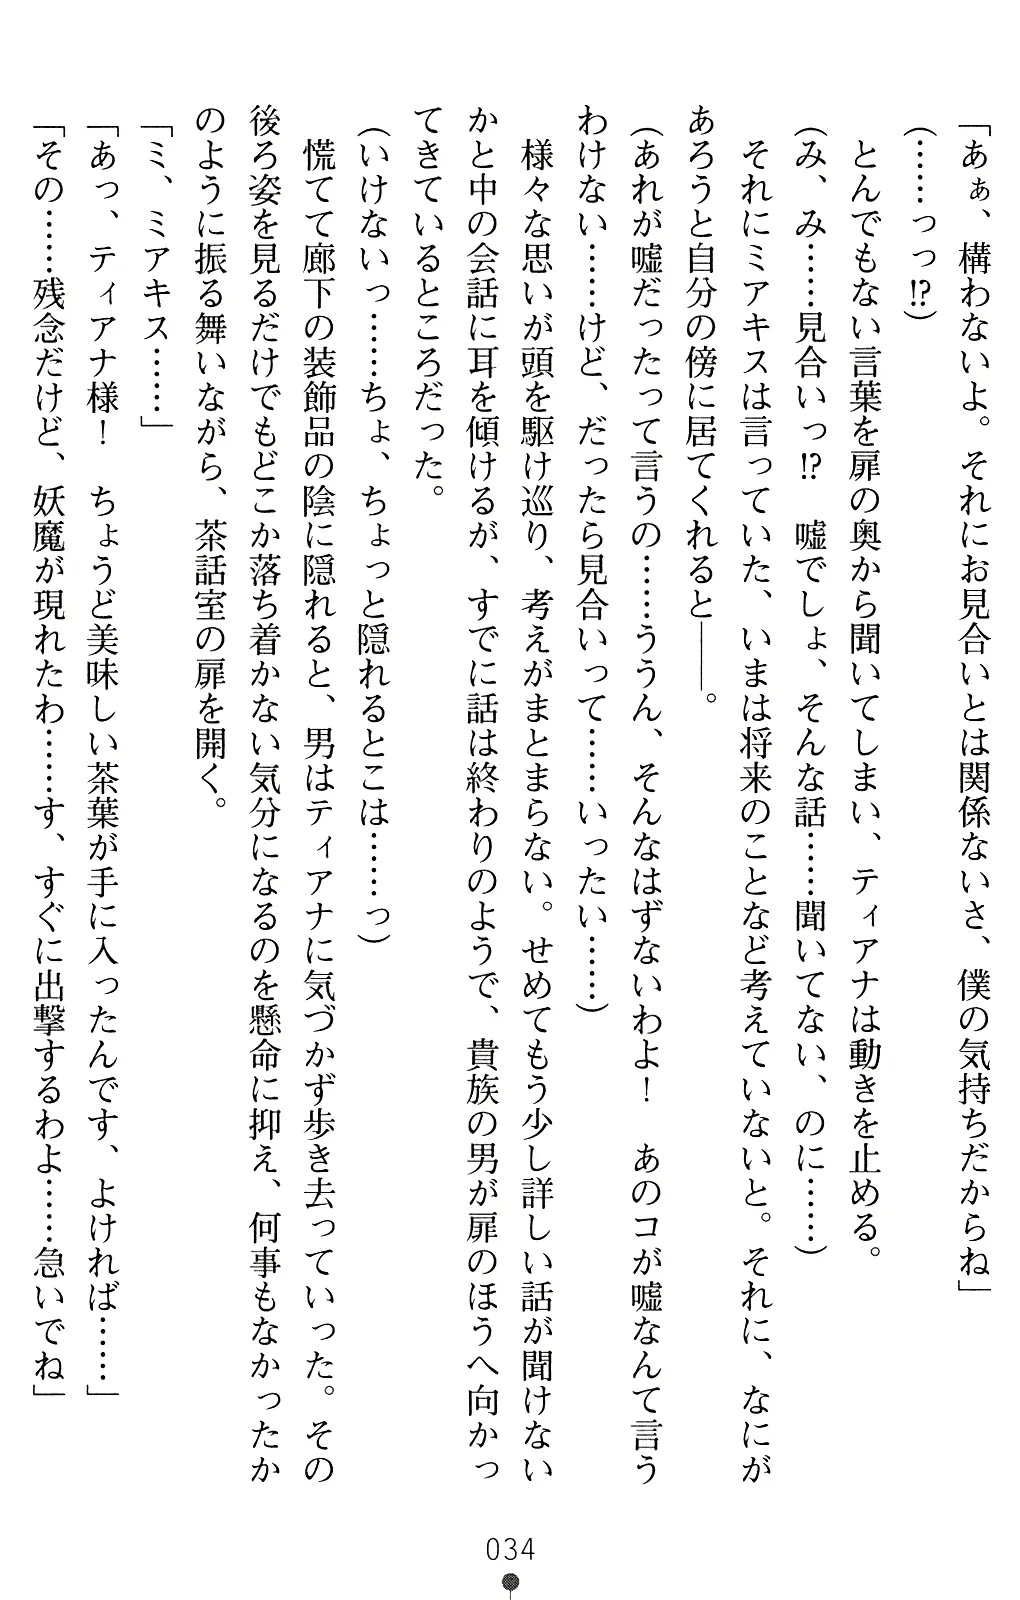 「あぁ、構わないよ。それにお見合いとは関係ないさ、僕の気持ちだからね」
(……っっ!?)
　とんでもない言葉を扉の奥から聞いてしまい、ティアナは動きを止める。
(み、み……見合いっ!?　嘘でしょ、そんな話……聞いてない、のに……)
　それにミアキスは言っていた、いまは将来のことなど考えていないと。それに、なにが
あろうと自分の傍に居てくれると――。
(あれが嘘だったって言うの……ううん、そんなはずないわよ！　あのコが嘘なんて言う
わけない……けど、だったら見合いって……いったい……)
　様々な思いが頭を駆け巡り、考えがまとまらない。せめてもう少し詳しい話が聞けない
かと中の会話に耳を傾けるが、すでに話は終わりのようで、貴族の男が扉のほうへ向かっ
てきているところだった。
(いけないっ……ちょ、ちょっと隠れるとこは……っ)
　慌てて廊下の装飾品の陰に隠れると、男はティアナに気づかず歩き去っていった。その
後ろ姿を見るだけでもどこか落ち着かない気分になるのを懸命に抑え、何事もなかったか
のように振る舞いながら、茶話室の扉を開く。
「ミ、ミアキス……」
「あっ、ティアナ様！　ちょうど美味しい茶葉が手に入ったんです、よければ……」
「その……残念だけど、妖魔が現れたわ……す、すぐに出撃するわよ……急いでね」
034